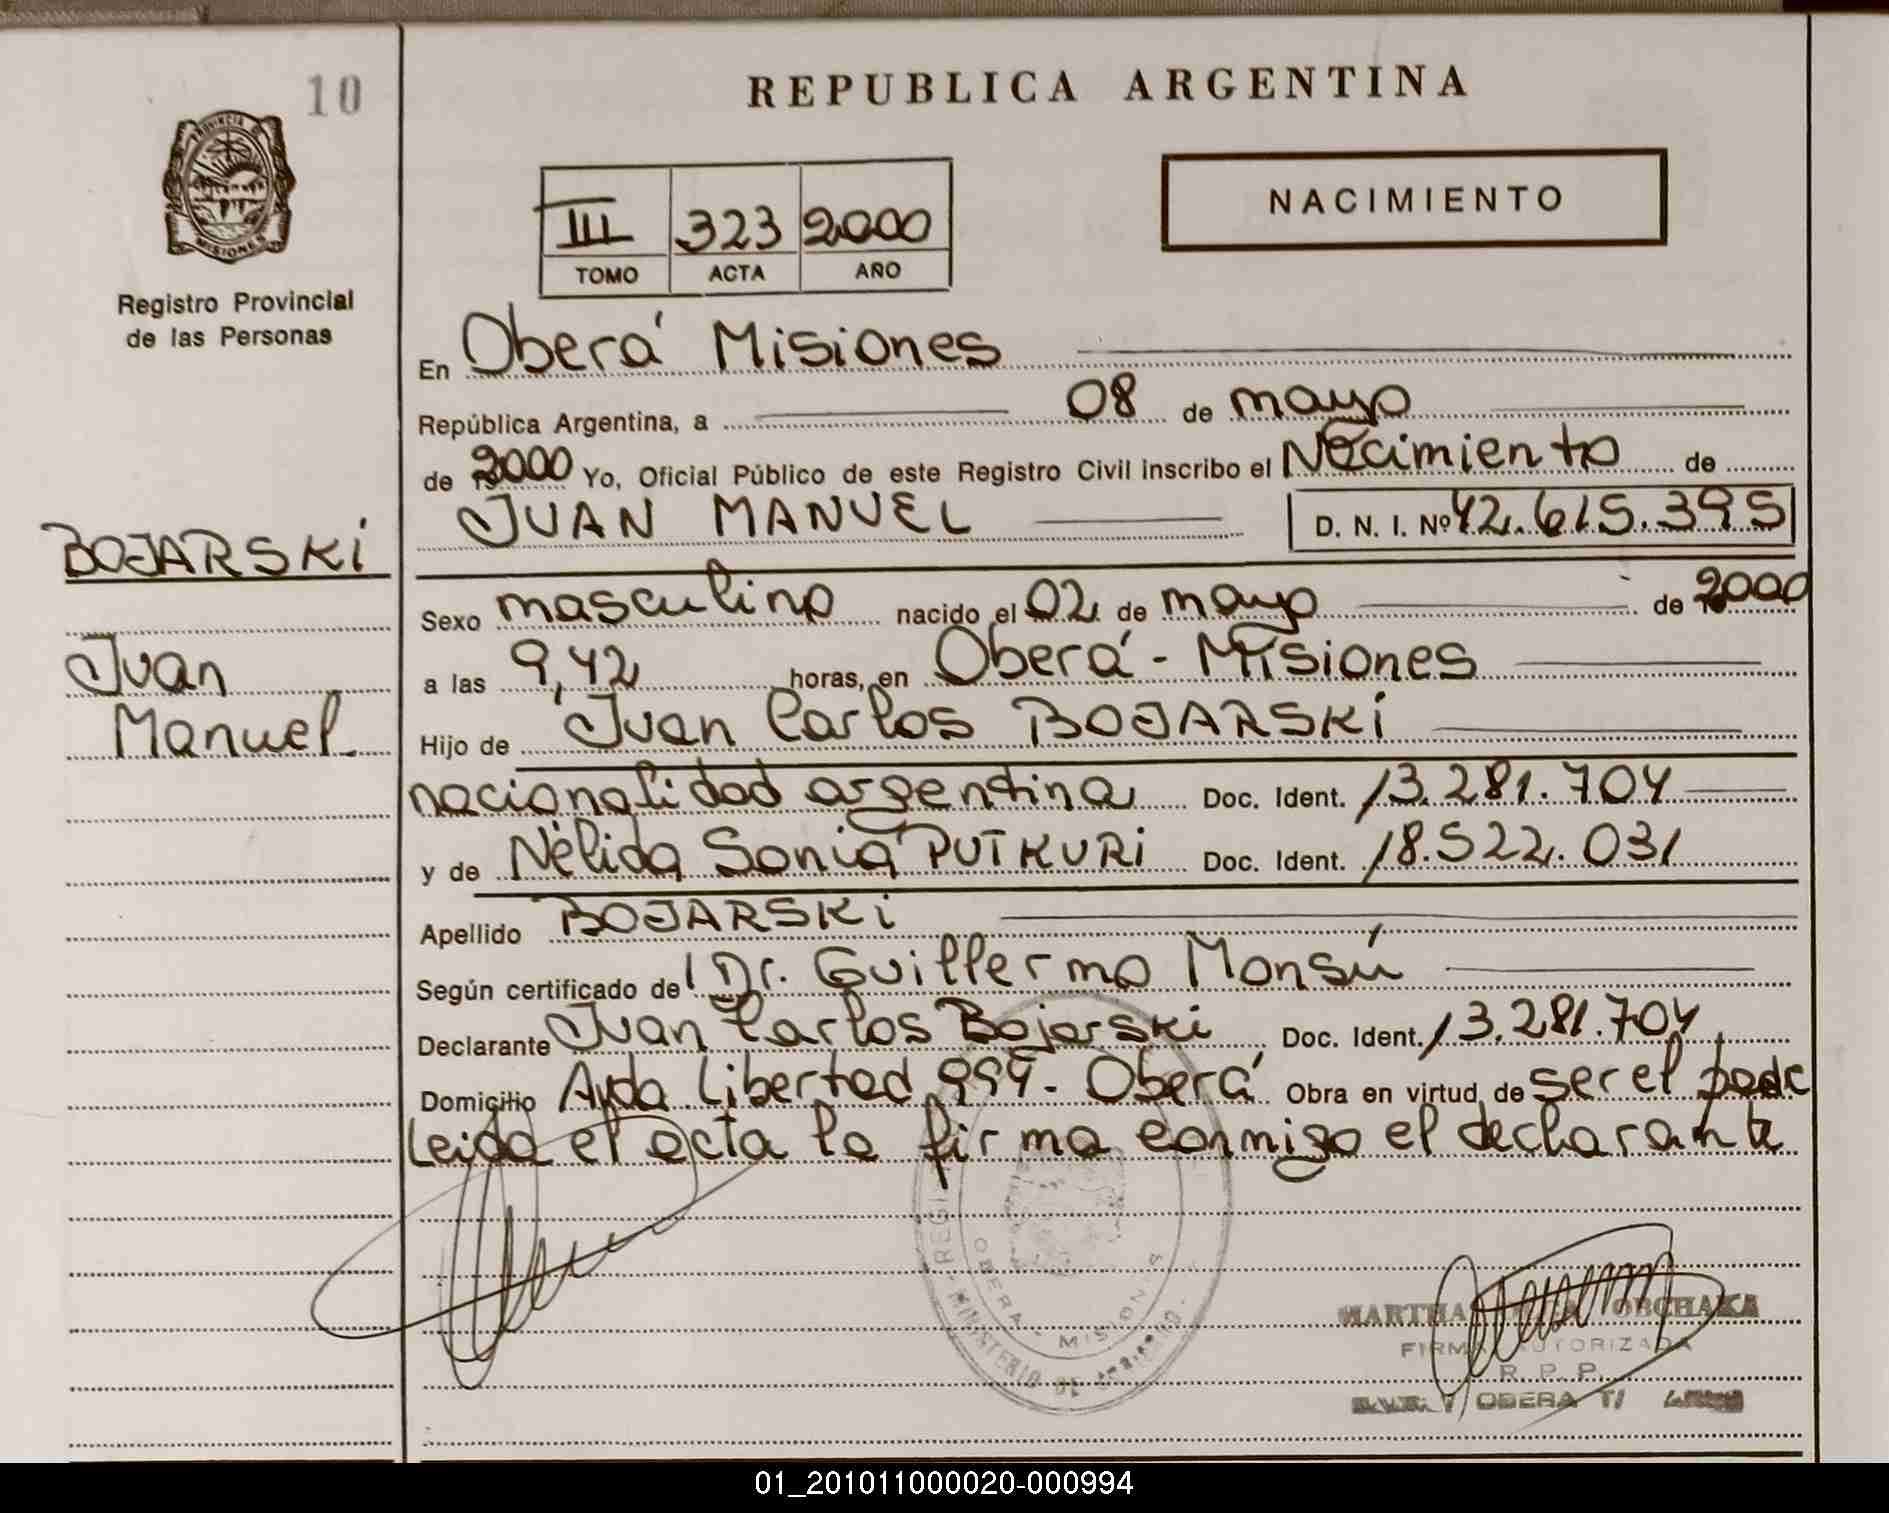 10
PROVINCIA DE
MISIONES
Registro Provincial
de las Personas
BOJARSKi
Juan
Manuel
REPUBLICA ARGENTINA
III 323 2000
TOMO ACTA AÑO
NACIMIENTO
En Oberá Misiones
República Argentina, a 08 de mayo
de 2000 Yo, Oficial Público de este Registro Civil inscribo el Nacimiento de
JUAN MANUEL D. N. I. Nº 42.615.395
Sexo masculino nacido el 02 de mayo de 2000
a las 9,42 horas, en Oberá - Misiones
Hijo de Juan Carlos BOJARSKi
nacionalidad argentina Doc. Ident. 13.281.704
y de Nélida Sonia PUTKURi Doc. Ident. 18.522.031
Apellido BOJARSKi
Según certificado de Dr. Guillermo Monsú
Declarante Juan Carlos Bojarski Doc. Ident. 13.281.704
Domicilio Avda Libertad 999 - Oberá Obra en virtud de ser el padre
Leida el acta la firma conmigo el declarante
OBERA - MISIONES
MINISTERIO DE GOBIERNO
MARTHA ORCHAKA
FIRMA AUTORIZADA
R. P. P.
OBERA
01_201011000020-000994